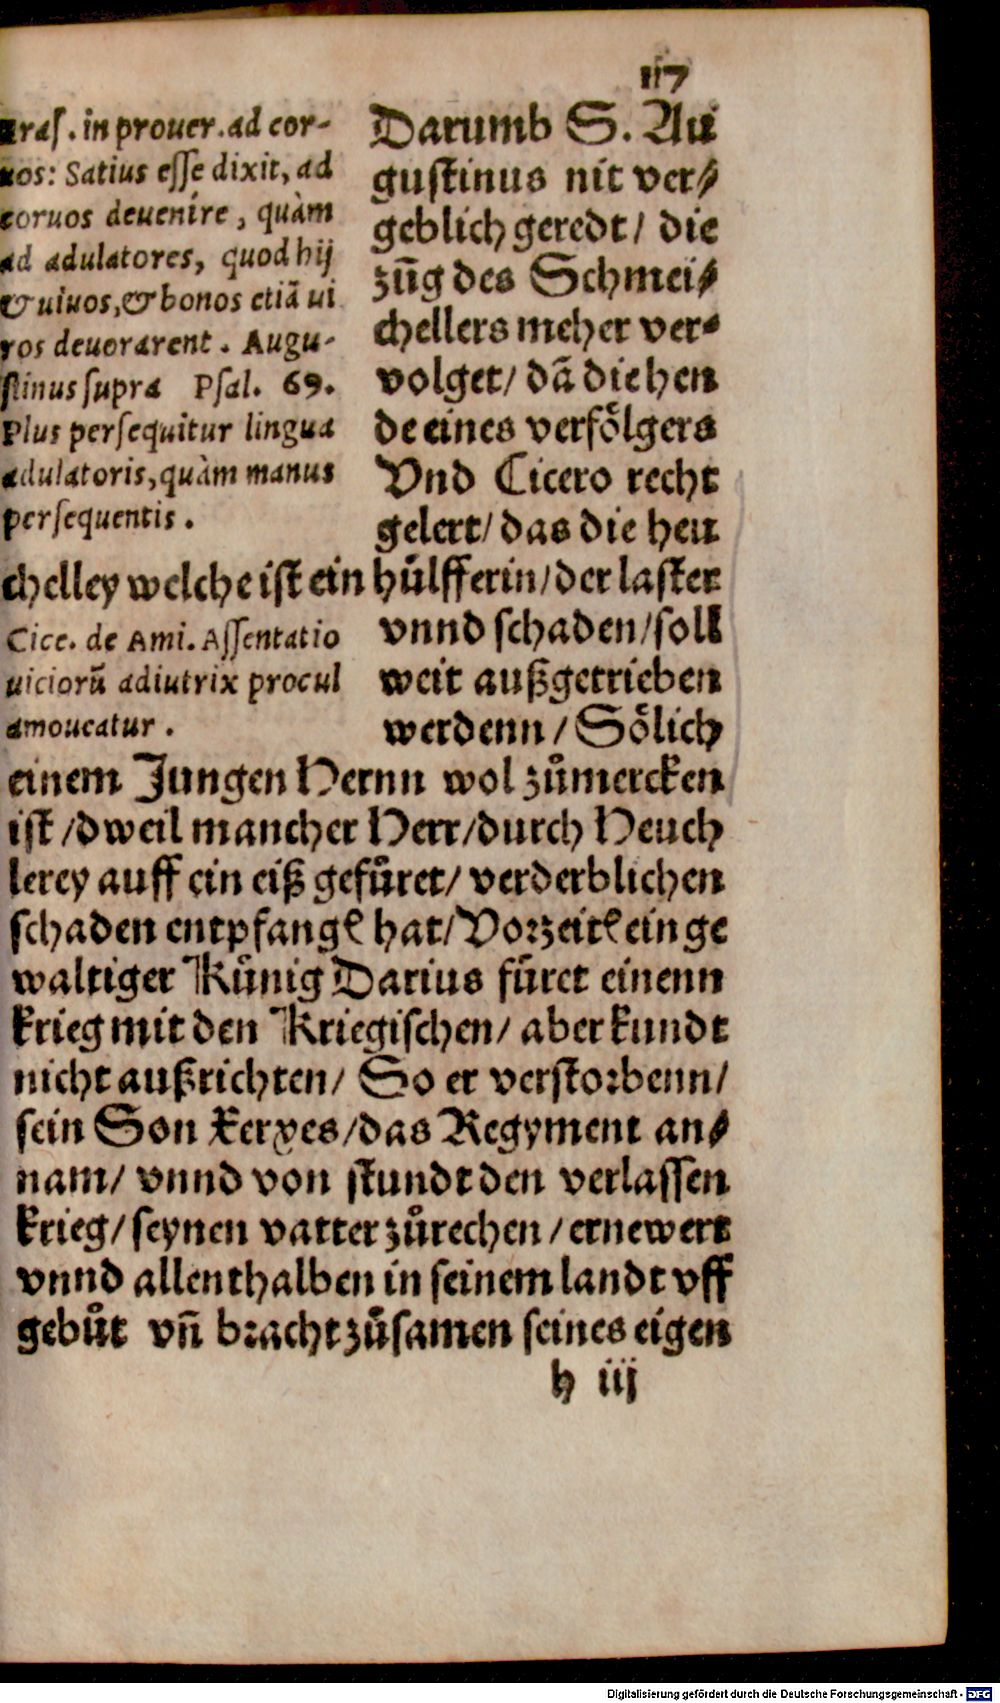 117
Eras. in prouer. ad cor-
uos: Satius esse dixit, ad
coruos deuenire, quàm
ad adulatores, quod hij
& uiuos, & bonos etiā ui
ros deuorarent. Augu-
stinus supra Psal. 69.
Plus persequitur lingua
adulatoris, quàm manus
persequentis.
Darumb S. Au
gustinus nit ver⸗
geblich geredt/ die
zūg des Schmei⸗
chellers meher ver⸗
volget/ dā die hen
de eines verfoͤlgers
Vnd Cicero recht
gelert/ das die heu
chelley welche ist ein huͤlfferin/ der laster
Cice. de Ami. Assentatio
uiciorū adiutrix procul
amoueatur.
vnnd schaden/ soll
weit außgetrieben
werdenn/ Soͤlich
einem Jungen Hernn wol zuͦmercken
ist/ dweil mancher Herr/ durch Heuch
lerey auff ein eiß gefuͤret/ verderblichen
schaden entpfangē hat/ Vorzeitē ein ge
waltiger Kuͤnig Darius fuͤret einenn
krieg mit den Kriegischen/ aber kundt
nicht außrichten/ So er verstorbenn/
sein Son Xerxes/ das Regyment an⸗
nam/ vnnd von stundt den verlassen
krieg/ seynen vatter zuͦrechen/ ernewert
vnnd allenthalben in seinem landt vff
gebuͦt vñ bracht zuͦsamen seines eigen
h iij
Digitalisierung gefördert durch die Deutsche Forschungsgemeinschaft - DFG